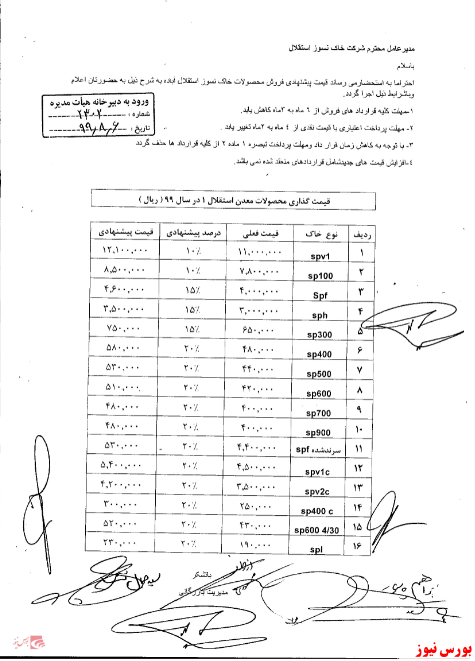 مدیرعامل محترم شرکت خاک نسوز استقلال
باسلام
احتراما به استحضارمی رساند قیمت پیشنهادی فروش محصولات خاک نسوز استقلال آباده به شرح ذیل به حضورتان اعلام
وباشرایط ذیل اجرا گردد.
ورود به دبیرخانه هیأت مدیره
شماره : ۲۳۰۲
تاریخ : ۹۹,۸,۶
۱-مهلت کلیه قرارداد های فروش از ۶ ماه به ۳ماه کاهش یابد.
۲- مهلت پرداخت اعتباری با قیمت نقدی از ۴ ماه به ۲ماه تغییر یابد .
۳- با توجه به کاهش زمان قرار داد ومهلت پرداخت تبصره ۱ ماده ۲ از کلیه قرارداد ها حذف گردد
۴-افزایش قیمت های جدیدشامل قراردادهای منعقد شده نمی باشد.
قیمت گذاری محصولات معدن استقلال ۱ در سال ۹۹ ( ریال )
ردیف نوع خاک قیمت فعلی درصد پیشنهادی قیمت پیشنهادی
۱ spv1 ۱۱,۰۰۰,۰۰۰ ۱۰٪ ۱۲,۱۰۰,۰۰۰
۲ sp100 ۷,۸۰۰,۰۰۰ ۱۰٪ ۸,۵۰۰,۰۰۰
۳ Spf ۴,۰۰۰,۰۰۰ ۱۵٪ ۴,۶۰۰,۰۰۰
۴ sph ۳,۰۰۰,۰۰۰ ۱۵٪ ۳,۵۰۰,۰۰۰
۵ sp300 ۶۵۰,۰۰۰ ۱۵٪ ۷۵۰,۰۰۰
۶ sp400 ۴۸۰,۰۰۰ ۲۰٪ ۵۸۰,۰۰۰
۷ sp500 ۴۴۰,۰۰۰ ۲۰٪ ۵۳۰,۰۰۰
۸ sp600 ۴۲۰,۰۰۰ ۲۰٪ ۵۱۰,۰۰۰
۹ sp700 ۴۰۰,۰۰۰ ۲۰٪ ۴۸۰,۰۰۰
۱۰ sp900 ۴۰۰,۰۰۰ ۲۰٪ ۴۸۰,۰۰۰
۱۱ سرندشده spf ۴,۴۰۰,۰۰۰ ۲۰٪ ۵۳۰,۰۰۰
۱۲ spv1c ۴,۵۰۰,۰۰۰ ۲۰٪ ۵,۴۰۰,۰۰۰
۱۳ spv2c ۳,۵۰۰,۰۰۰ ۲۰٪ ۴,۲۰۰,۰۰۰
۱۴ sp400 c ۲۵۰,۰۰۰ ۲۰٪ ۳۰۰,۰۰۰
۱۵ sp600 4/30 ۴۳۰,۰۰۰ ۲۰٪ ۵۲۰,۰۰۰
۱۶ spl ۱۹۰,۰۰۰ ۲۰٪ ۲۳۰,۰۰۰
باتشکر
مدیریت بازرگانی
بورس نیوز